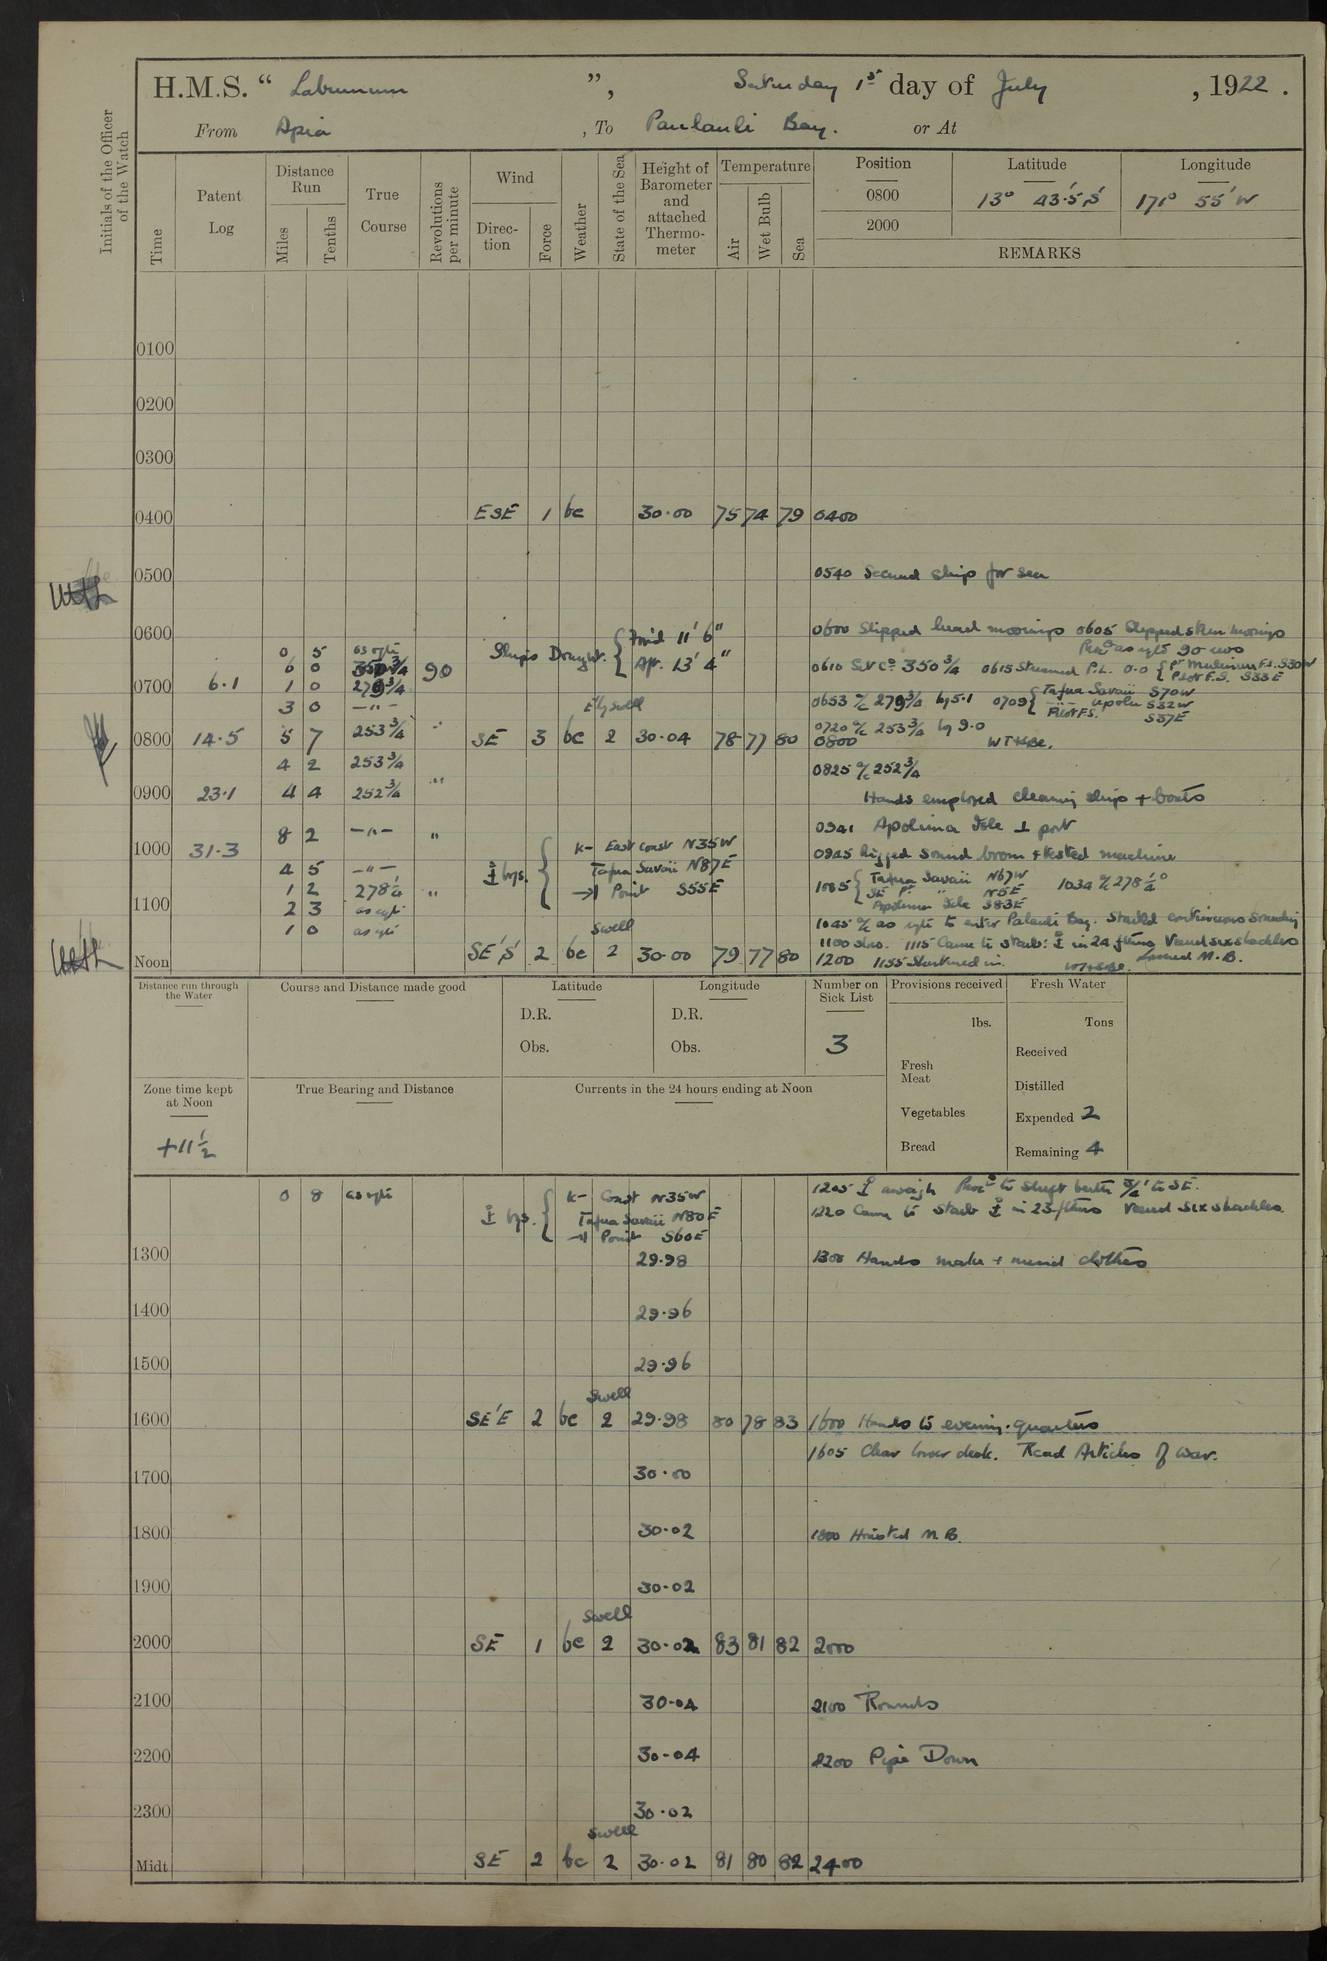 H.M.S. “ Laburnum ”, Saturday 1st day of July , 1922 .
From Apia , To Paulauli Bay. or At
Initials of the Officer of the Watch
Time
Patent Log
Distance Run
Miles
Tenths
True Course
Revolutions per minute
Wind
Direc-tion
Force
Weather
State of the Sea
Height of Barometer and attached Thermo-meter
Temperature
Air
Wet Bulb
Sea
Position Latitude Longitude
0800 13° 43·5' S 171° 55' W
2000
REMARKS
0100
0200
0300
0400 ESE 1 bc 30·00 75 74 79 0400
0500 0540 Secured ship for sea
0600 0600 Slipped head moorings 0605 Slipped stern moorings
0 5 as req Proc as req 90 revs
6 0 350 3/4 90 Ship's Draught. { For'd 11' 6" Aft. 13' 4" 0610 S/C 350 3/4 0615 Streamed P.L. 0·0 { Pt Mulinuu F.S. S30W
Pilot F.S. S33E
0700 6·1 1 0 279 3/4 0653 a/c 279 3/4 log 5·1 0709 { Tafua Savaii S70W
3 0 —"— E'ly swell —"— Upolu S32W
Pilot F.S. S37E
0720 a/c 253 3/4 log 9·0
0800 14·5 5 7 253 3/4 " SE 3 bc 2 30·04 78 77 80 0800 WT+SBe.
4 2 253 3/4 0825 a/c 252 3/4
0900 23·1 4 4 252 3/4 " Hands employed cleaning ship + boats
8 2 —"— " 0941 Apolima Isle ⊥ port
1000 31·3 K- East coast N35W 0945 Rigged sound boom + tested machine
4 5 —"— ⚓ brgs. { Tafua Savaii N87E
1 2 278 1/4 " →| Point S55E 1025 { Tafua Savaii N67W 1034 a/c 278 1/4°
SE Pt. " N5E
1100 2 3 as req Apolima Isle S83E
1 0 as req Swell 1045 a/c as req to enter Palauli Bay. Started continuous sounding
1100 Slow. 1115 Came to starb: ⚓ in 24 fthms Veered six shackles
Noon SE'S 2 bc 2 30·00 79 77 80 1200 1155 Shortened in. WT+SBe. Lowered M.B.
Distance run through the Water
Course and Distance made good
Latitude
D.R.
Obs.
Longitude
D.R.
Obs.
Number on Sick List
3
Provisions received
lbs.
Fresh Meat
Vegetables
Bread
Fresh Water
Tons
Received
Distilled
Expended 2
Remaining 4
Zone time kept at Noon
+11 1/2
True Bearing and Distance
Currents in the 24 hours ending at Noon
0 8 as req K- Coast N35W 1205 ⚓ aweigh Proc to shift berth 3/4' to SE.
⚓ brgs. { Tafua Savaii N80E 1220 Came to starb ⚓ in 23 fthms Veered six shackles.
→| Point S60E
1300 29·98 1300 Hands make + mend clothes
1400 29·96
1500 29·96
Swell
1600 SE'E 2 bc 2 29·98 80 78 83 1600 Hands to evening quarters
1605 Clear lower deck. Read Articles of War.
1700 30·00
1800 30·02 1800 Hoisted M.B.
1900 30·02
Swell
2000 SE 1 bc 2 30·02 83 81 82 2000
2100 30·04 2100 Rounds
2200 30·04 2200 Pipe Down
2300 30·02
Swell
Midt SE 2 bc 2 30·02 81 80 82 2400